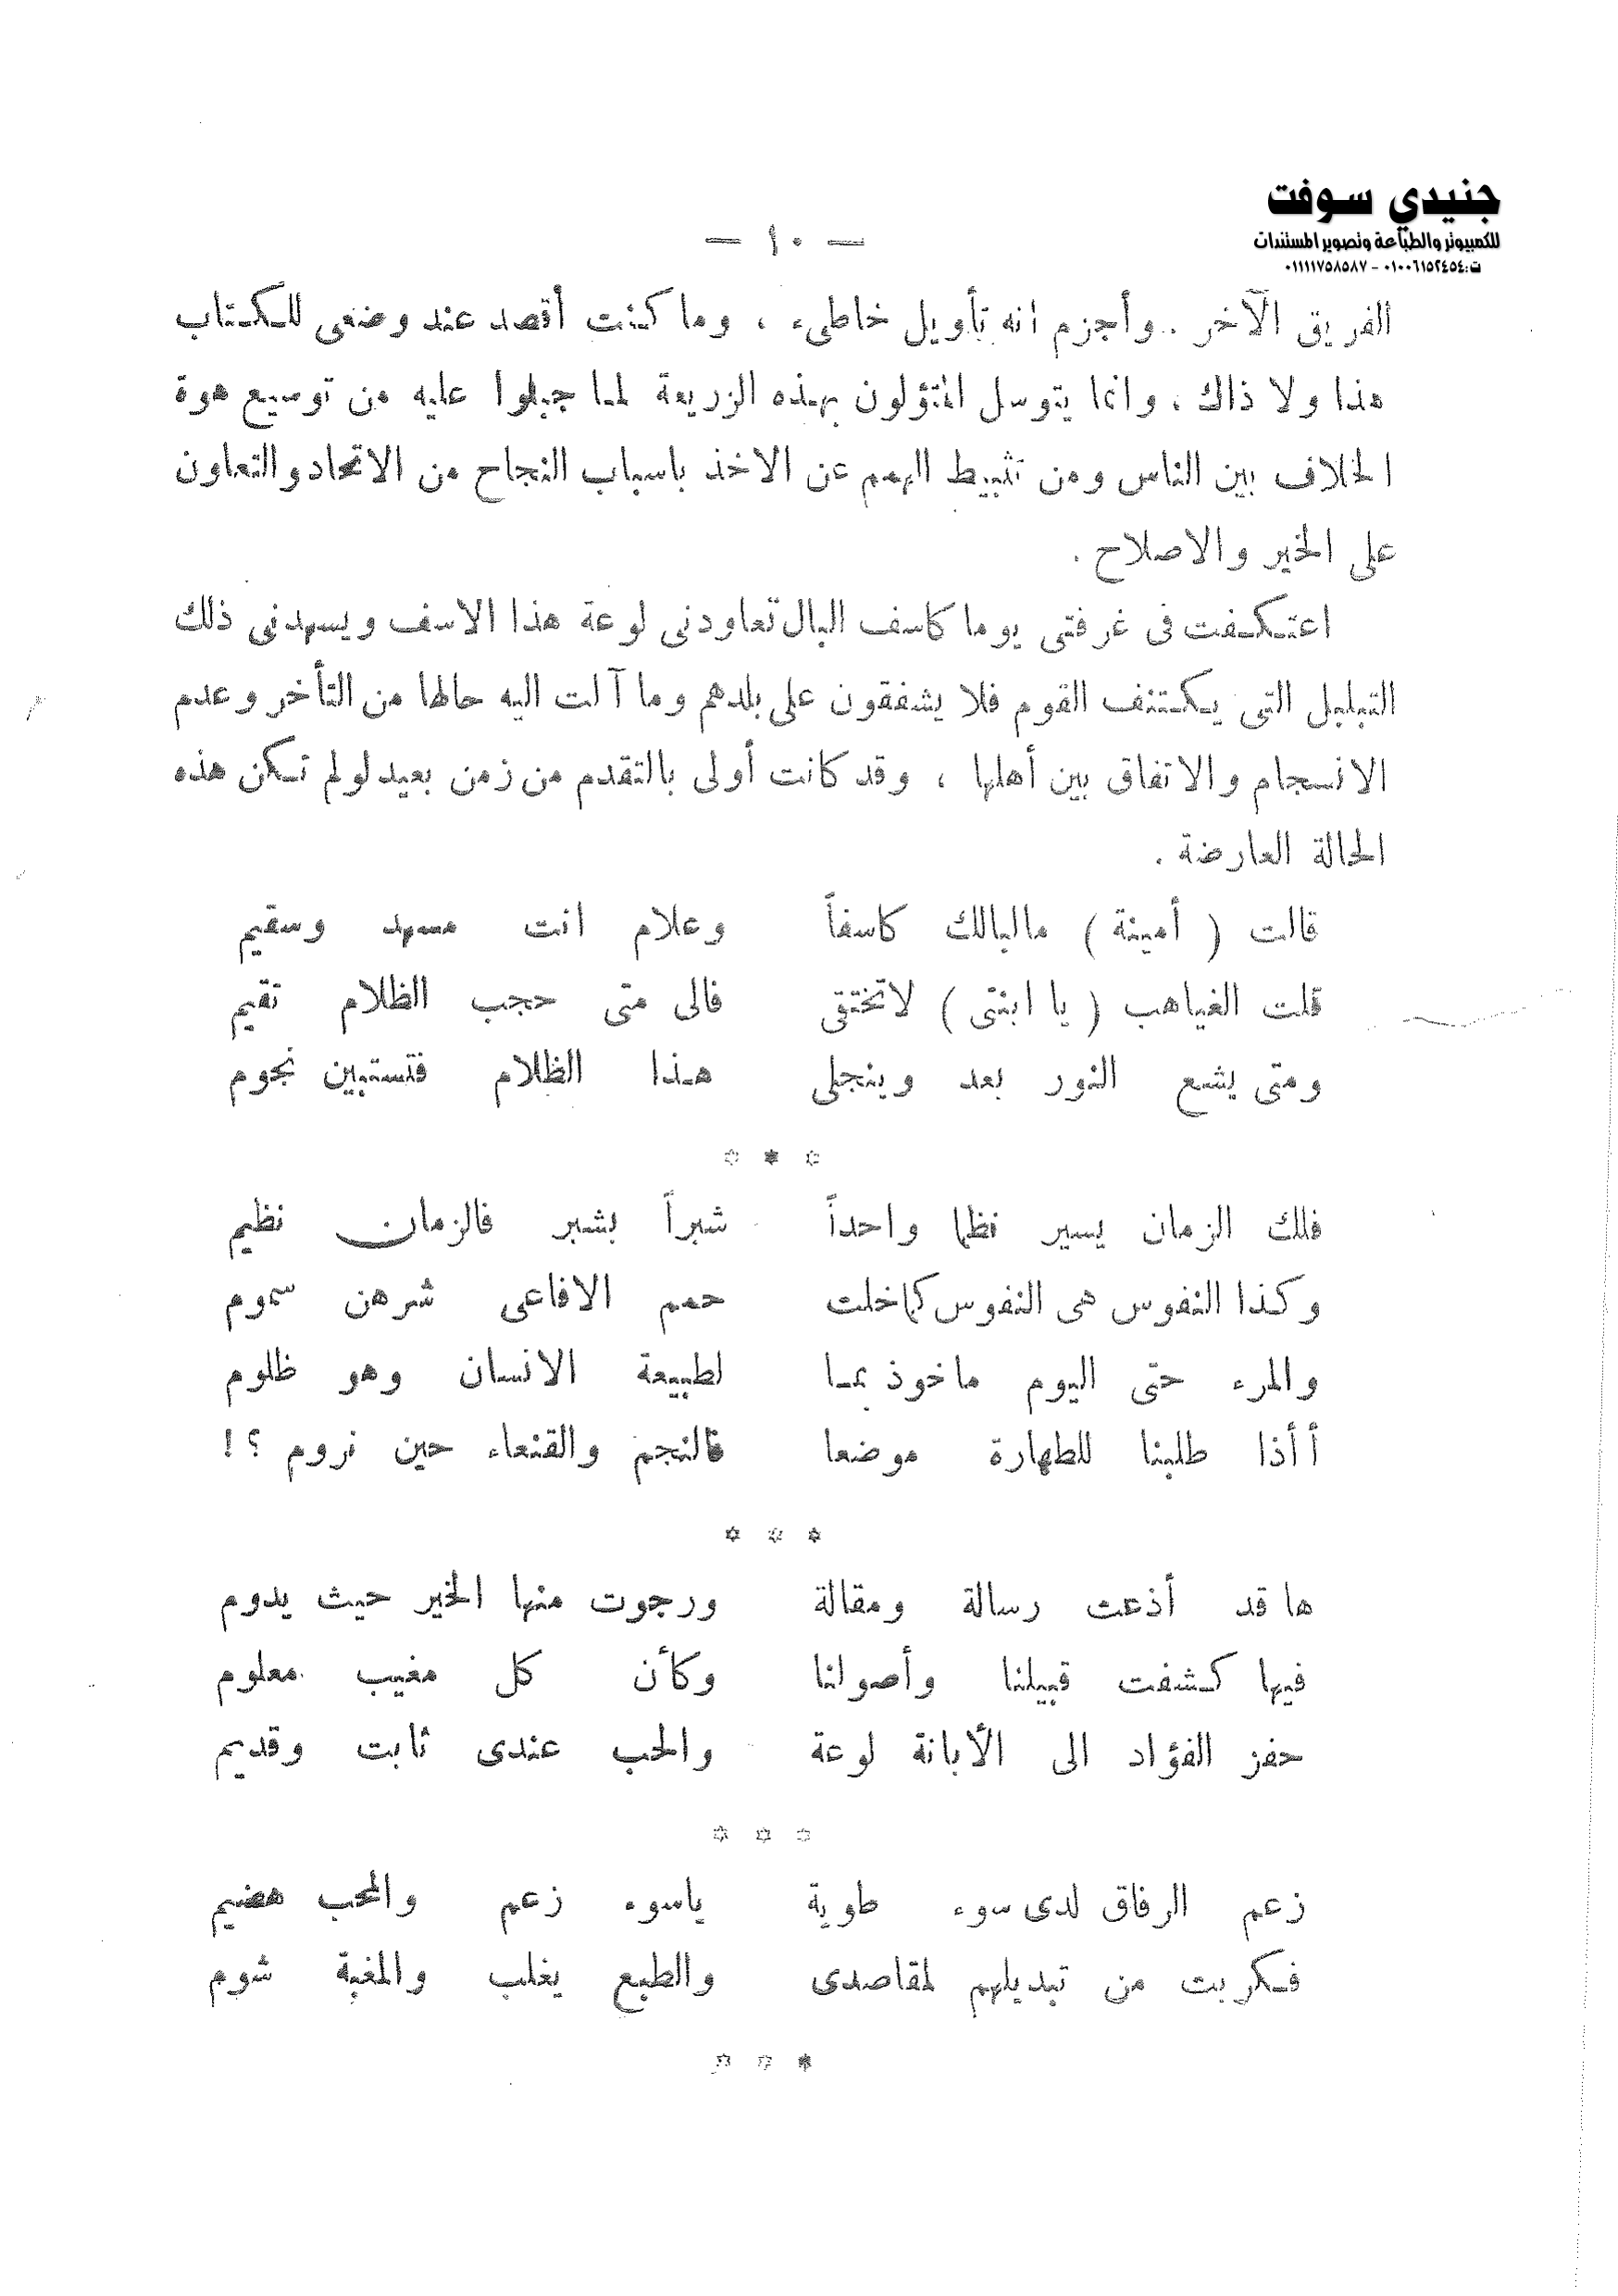 جنيدي سوفت
للكمبيوتر والطباعة وتصوير المستندات
ت: ٠١٠٠٦١٥٢٤٥٤ - ٠١١١١٧٥٨٥٨٧
— ١٠ —
الفريق الآخر . وأجزم انه تأويل خاطىء ، وما كنت أقصد عند وضعى للكتاب
هذا ولا ذاك ، وانما يتوسل المتؤلون بهذه الزريعة لما جبلوا عليه من توسيع هوة
الخلاف بين الناس ومن تثبيط الهمم عن الاخذ باسباب النجاح من الاتحاد والتعاون
على الخير والاصلاح .
اعتكفت فى غرفتى يوما كاسف البال تعاودنى لوعة هذا الاسف ويسهدنى ذلك
التبلبل التى يكتنف القوم فلا يشفقون على بلدهم وما آلت اليه حالها من التأخر وعدم
الانسجام والاتفاق بين أهلها ، وقد كانت أولى بالتقدم من زمن بعيد لو لم تكن هذه
الحالة العارضة .
قالت ( أمينة ) مالبالك كاسفاً وعلام انت مسهد وسقيم
قلت الغياهب ( يا ابنتى ) لاتختقى فالى متى حجب الظلام تقيم
ومتى يشع النور بعد وينجلى هذا الظلام فتستبين نجوم
* * *
فلك الزمان يسير نظما واحداً شبراً بشبر فالزمان نظيم
وكذا النفوس هى النفوس كما خلت حمم الافاعى شرهن سموم
والمرء حتى اليوم ماخوذ بما لطبيعة الانسان وهو ظلوم
أ أذا طلبنا للطهارة موضعا فالنجم والقنعاء حين نروم ؟ !
* * *
ها قد أذعت رسالة ومقالة ورجوت منها الخير حيث يدوم
فيها كشفت قبيلنا وأصولنا وكأن كل مغيب معلوم
حفز الفؤاد الى الأبانة لوعة والحب عندى ثابت وقديم
* * *
زعم الرفاق لدى سوء طوية ياسوء زعم والمحب هضيم
فكربت من تبديلهم لمقاصدى والطبع يغلب والمغبة شوم
* * *